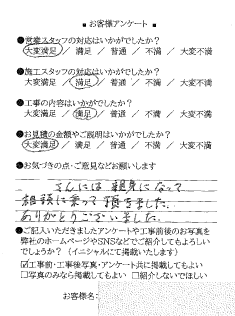 ■ お客様アンケート ■
●営業スタッフの対応はいかがでしたか？
大変満足 ／ 満足 ／ 普通 ／ 不満 ／ 大変不満
●施工スタッフの対応はいかがでしたか？
大変満足 ／ 満足 ／ 普通 ／ 不満 ／ 大変不満
●工事の内容はいかがでしたか？
大変満足 ／ 満足 ／ 普通 ／ 不満 ／ 大変不満
●お見積の金額やご説明はいかがでしたか？
大変満足 ／ 満足 ／ 普通 ／ 不満 ／ 大変不満
●お気づきの点・ご意見などお願いします
さんには 親身になって
相談に乗って頂きました。
ありがとうございました。
●ご記入いただきましたアンケートや工事前後のお写真を
弊社のホームページやSNSなどでご紹介してもよろしい
でしょうか？（イニシャルにて掲載いたします）
☑工事前・工事後写真・アンケート共に掲載してもよい
□写真のみなら掲載してもよい □紹介しないでほしい
お客様名：